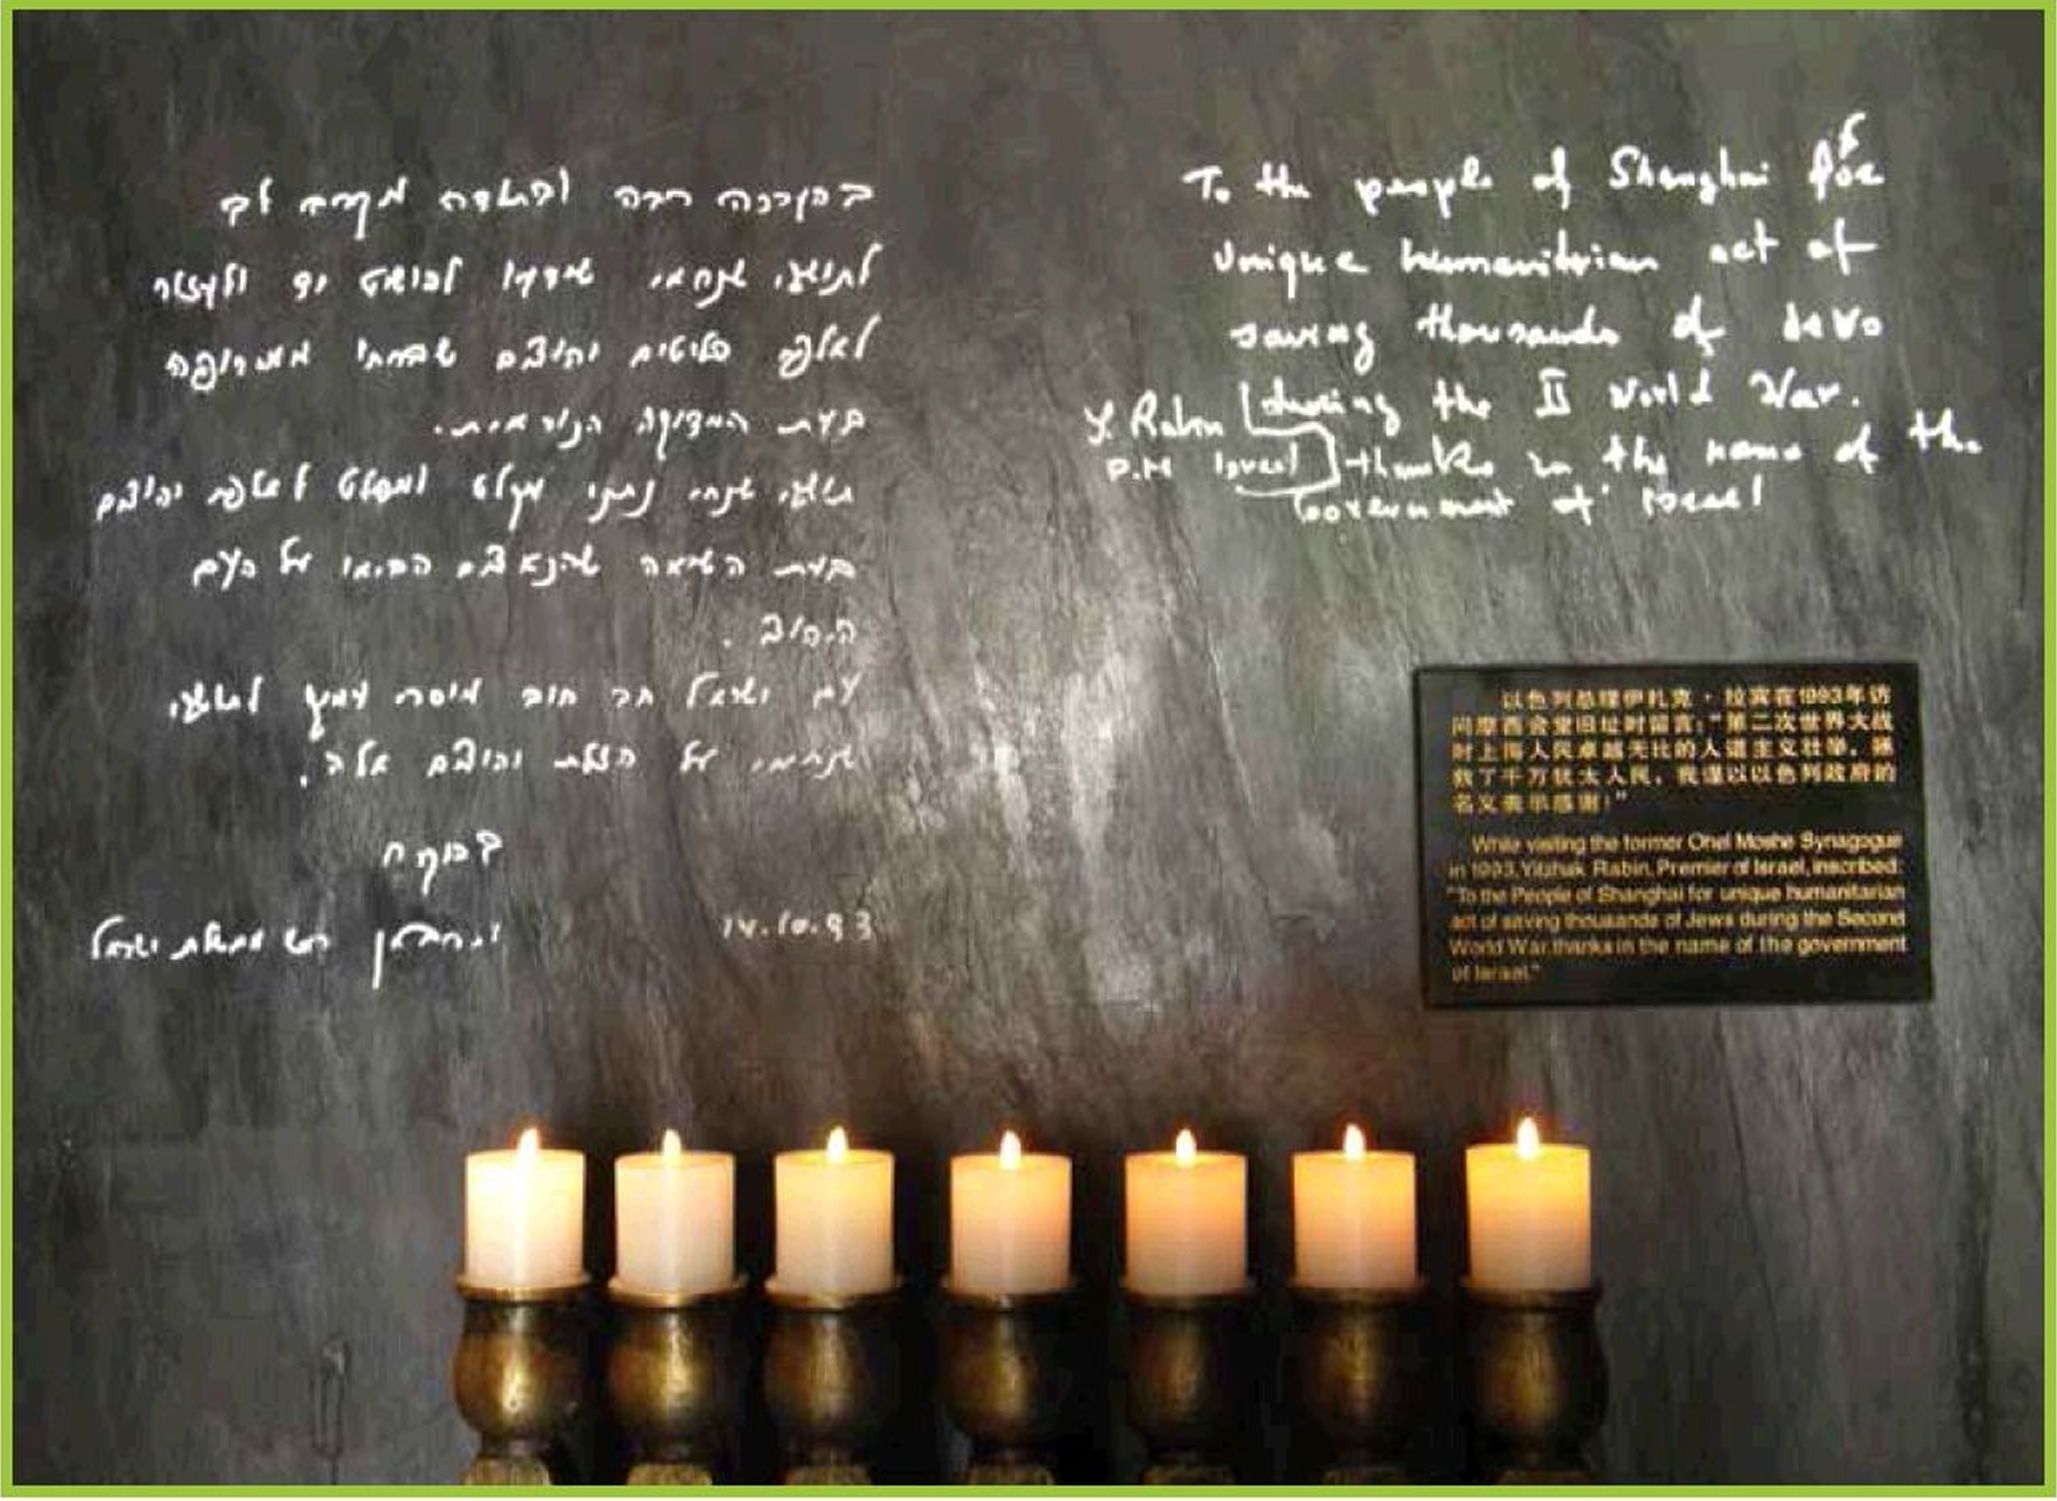 בהוקרה רבה ובתודה מקרב לב
לתושבי שנחאי שידעו להושיט יד ולעזור
לאלפי פליטים יהודים שברחו מאירופה
בעת המצוקה הנוראית.
תושבי שנחאי נתנו מקלט ומפלט לאלפי יהודים
בעת השואה שהנאצים הביאו על העם
היהודי.
עם ישראל חב חוב מוסרי עמוק לתושבי
שנחאי על הצלת יהודים אלה.
ראש ממשלת ישראל
14.10.93
To the people of Shanghai for
unique humanitarian act of
saving thousands of Jews
during the II World War.
thanks in the name of the
Government of Israel
Y. Rabin
P.M Israel
以色列总理伊扎克·拉宾在1993年访
问摩西会堂旧址时留言:"第二次世界大战
时上海人民卓越无比的人道主义壮举,拯
救了千万犹太人民,我谨以以色列政府的
名义表示感谢!"
While visiting the former Ohel Moshe Synagogue
in 1993, Yitzhak Rabin, Premier of Israel, inscribed:
"To the People of Shanghai for unique humanitarian
act of saving thousands of Jews during the Second
World War, thanks in the name of the government
of Israel."